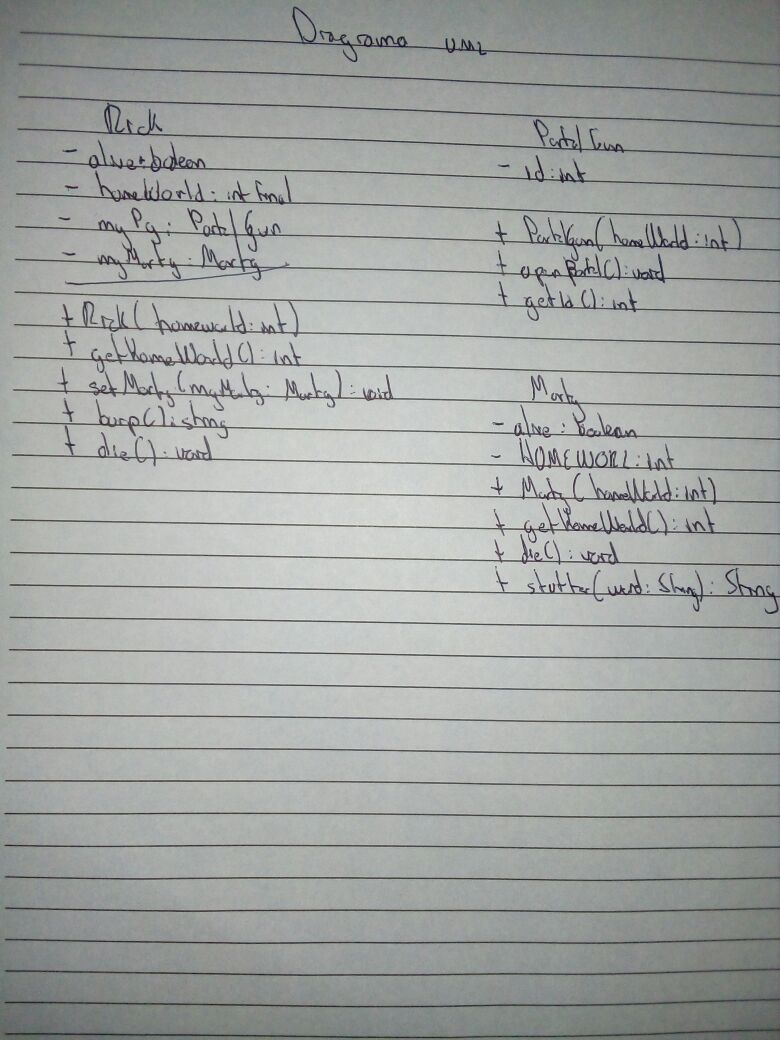 Diagrama UML
Rick
- alive: boolean
- homeWorld: int final
- myPg: Portal Gun
- myMorty: Morty
+ Rick(homeworld: int)
+ getHomeWorld(): int
+ setMorty(myMorty: Morty): void
+ burp(): string
+ die(): void
Portal Gun
- id: int
+ PortalGun(homeWorld: int)
+ openPortal(): void
+ getId(): int
Morty
- alive: boolean
- HOMEWORL: int
+ Morty(homeWorld: int)
+ getHomeWorld(): int
+ die(): void
+ stutter(word: String): String